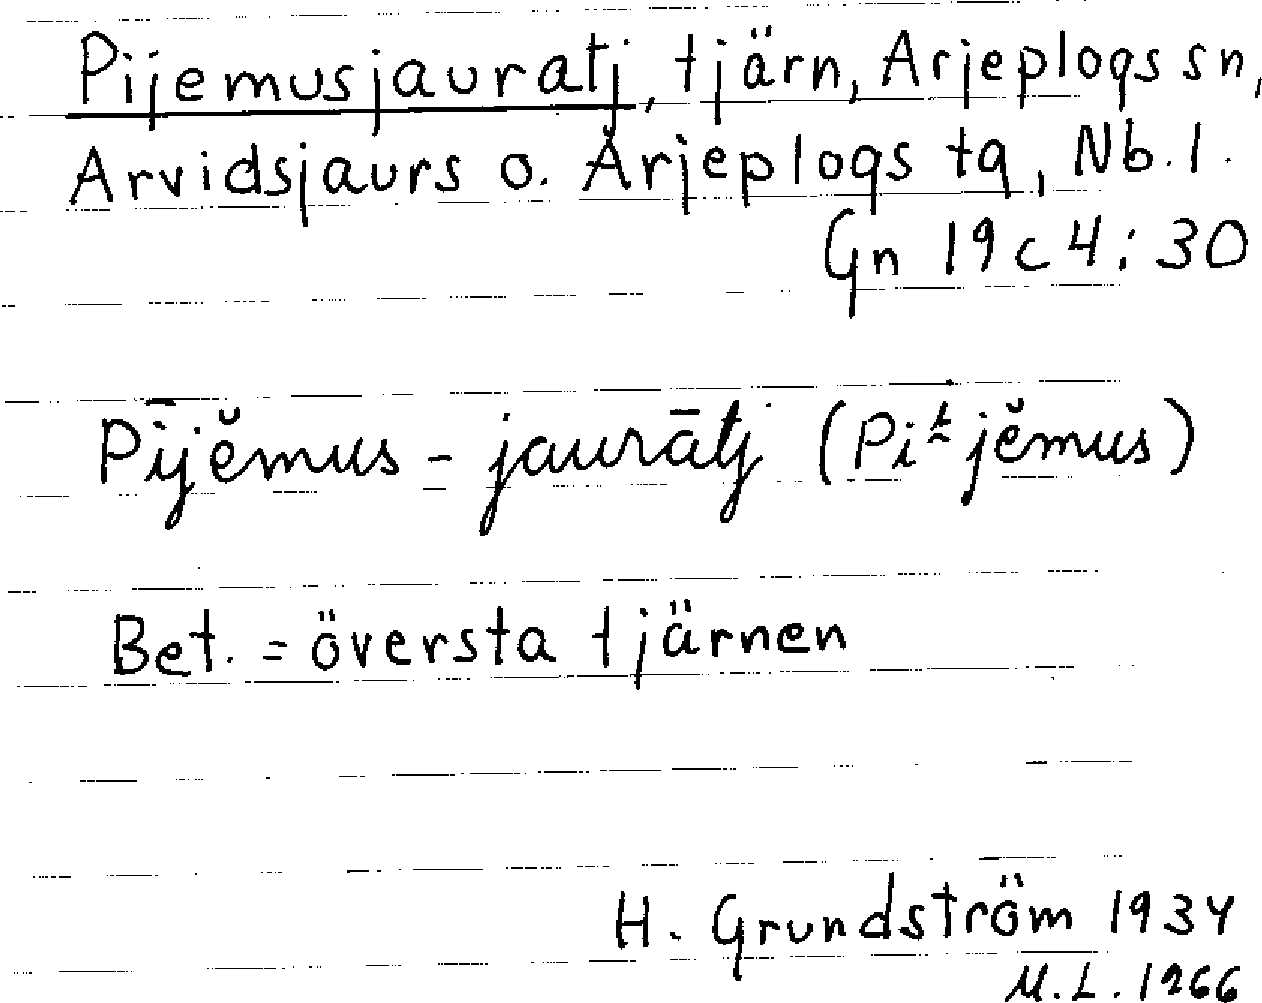 Pijemusjauratj, tjärn, Arjeplogs sn,
Arvidsjaurs o. Arjeplogs tg, Nb. l.
Gn 19 c 4 : 30
Pījĕmus - jaurātj (Piᵗjĕmus)
Bet. = översta tjärnen
H. Grundström 1934
M.L. 1966